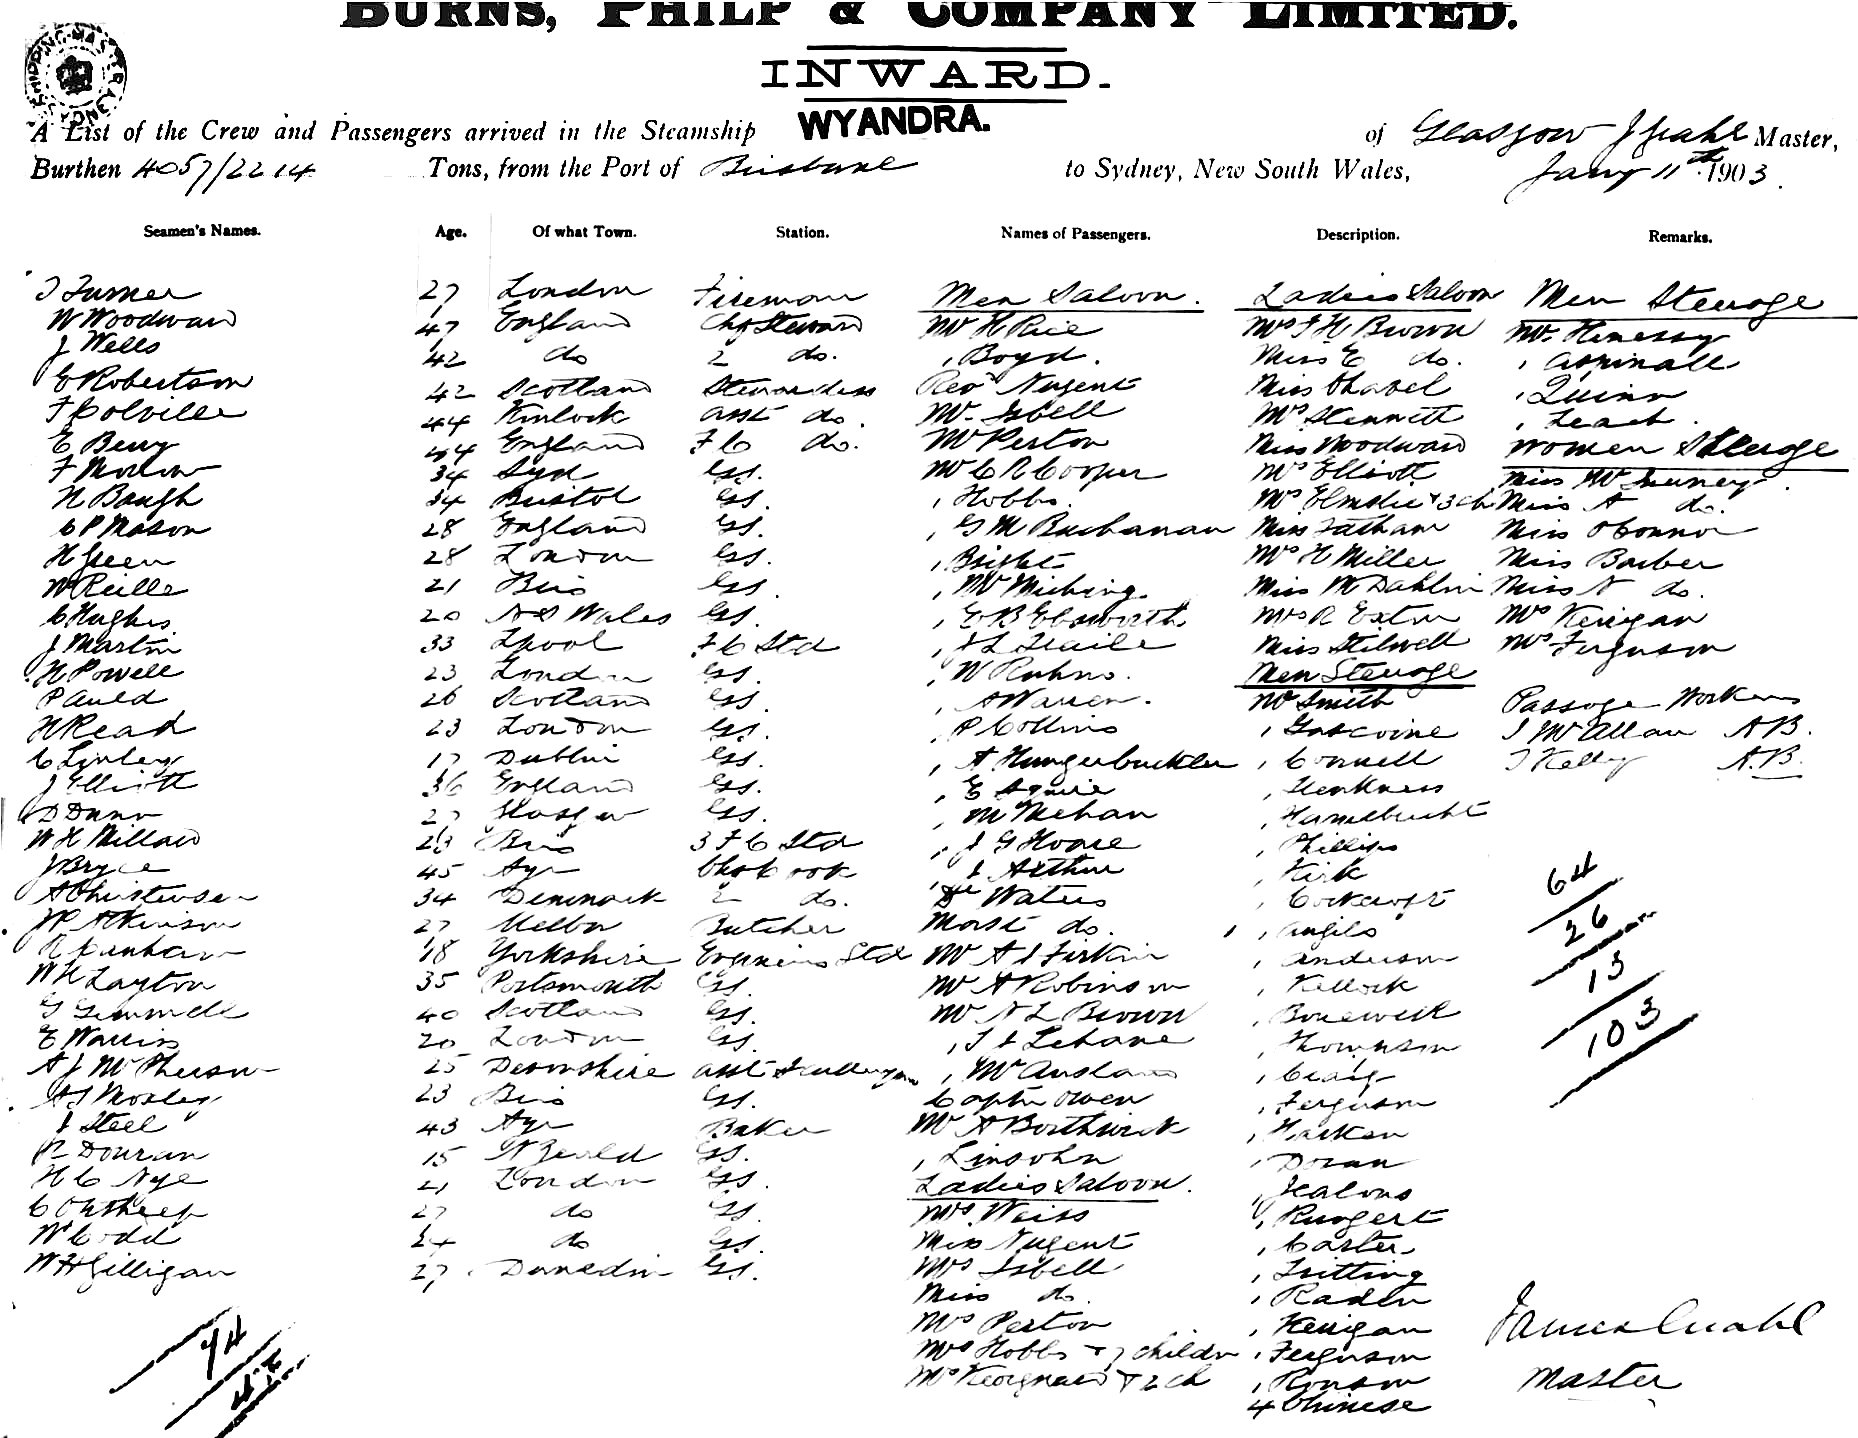 BURNS, PHILP & COMPANY LIMITED.
INWARD.
A List of the Crew and Passengers arrived in the Steamship WYANDRA. of Glasgow Master,
Burthen 4057/2214 Tons, from the Port of Brisbane to Sydney, New South Wales, Jany 11th 1903.
Seamen's Names. Age. Of what Town. Station. Names of Passengers. Description. Remarks.
J Turner 27 London Fireman Men Saloon. Ladies Saloon Men Steerage
W Woodward 47 England Chf Steward Mr H Rice Mrs J H Brown Mr. Henessy
J Wells 42 do 2 do. , Boyd. Miss E do. , Aspinall
E Robertson 42 Scotland Stewardess Revd Nugent Miss , Quinn
F Colville 44 Kinlock asst do. Mr. Isbell Mrs Stennett , Leach.
E Berry 44 England F C do. Mr Perton Miss Woodward Women Steerage
F Morrow 34 Syd Gs. Mr C R Cooper Mrs Elliott Miss
N Baugh 34 Bristol Gs. , Hobbs. Mrs Elmslie + 3 ch Miss A do.
C P Mason 28 England Gs. , G M Buchanan Miss Tatham Miss OConnor
H Green 28 London Gs. , Bright Mrs H Miller Miss Barber
W Reille 21 Bris Gs. , Miss M Dahlin Miss N do.
C Hughes 20 N S Wales Gs. , E B Ebsworth Mrs R Exton Mrs Kerrigan
J Martin 33 Lpool F C Std , Miss Stilwell Mrs Ferguson
H Powell 23 London Gs. , W Ruhno. Men Steerage
P Auld 26 Scotland Gs. , A Warren. Mr Smith Passage Workers
H Read 23 London Gs. , P Collins , Gascoine J McAllan A B.
C Linley 17 Dublin Gs. , A. Hungerbuckler , Connell J Kelly A.B.
J Elliott 36 England Gs. , E Squire , Henkness
D Dunn 27 Glasgow Gs. , M Mehan
W H Millard 23 Bris 3 F C Std , J G Hoare , Phillips
J Bryce 45 Ayr Chf Cook , J Arthur , Kirk 64
A Christensen 34 Denmark 2 do. , Dr Waters , Cockcroft
J P Atkinson 27 Melbn Butcher Mast do. , Angilo 26
18 Yorkshire Engineers Std Mr A J Firkin , Anderson
W H Layton 35 Portsmouth Gs. Mr A Robinson , Kellock 13
G Gemmell 40 Scotland Gs. Mr N L Brown , Bonewell
E Warrin 20 London Gs. , T J Lehane , Thompson 103
A J McPherson 25 Devonshire asst , McAusland , Craig
A J Moxley 23 Bris Gs. Captn Owen , Ferguson
J Steel 43 Ayr Baker Mr A Borthwick , Harken
P Douran 15 N Zeald Gs. , Linsohn , Doran
H C Nye 21 London Gs. Ladies Saloon. , Jealous
27 do Gs. Mrs Weiss , Rungert
W Codd 24 do Gs. Miss Nugent , Carter
W H Gilligan 27 Dunedin Gs. Mrs Isbell , Tritting
Miss do. , Raden
74 Mrs Perton , Kerrigan
Mrs Hobbs + 7 childn , Ferguson
Mrs + 2 ch , Ronson Master
4 Chinese